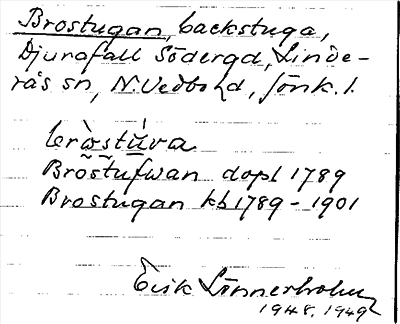 Brostugan, backstuga,
Djurafall Södergd, Linde-
rås sn, N. Vedbo hd, Jönk. l.
bròstùva
Bröstufwan dopl 1789
Brostugan kb 1789 - 1901
Erik Linnerholm
1948, 1949